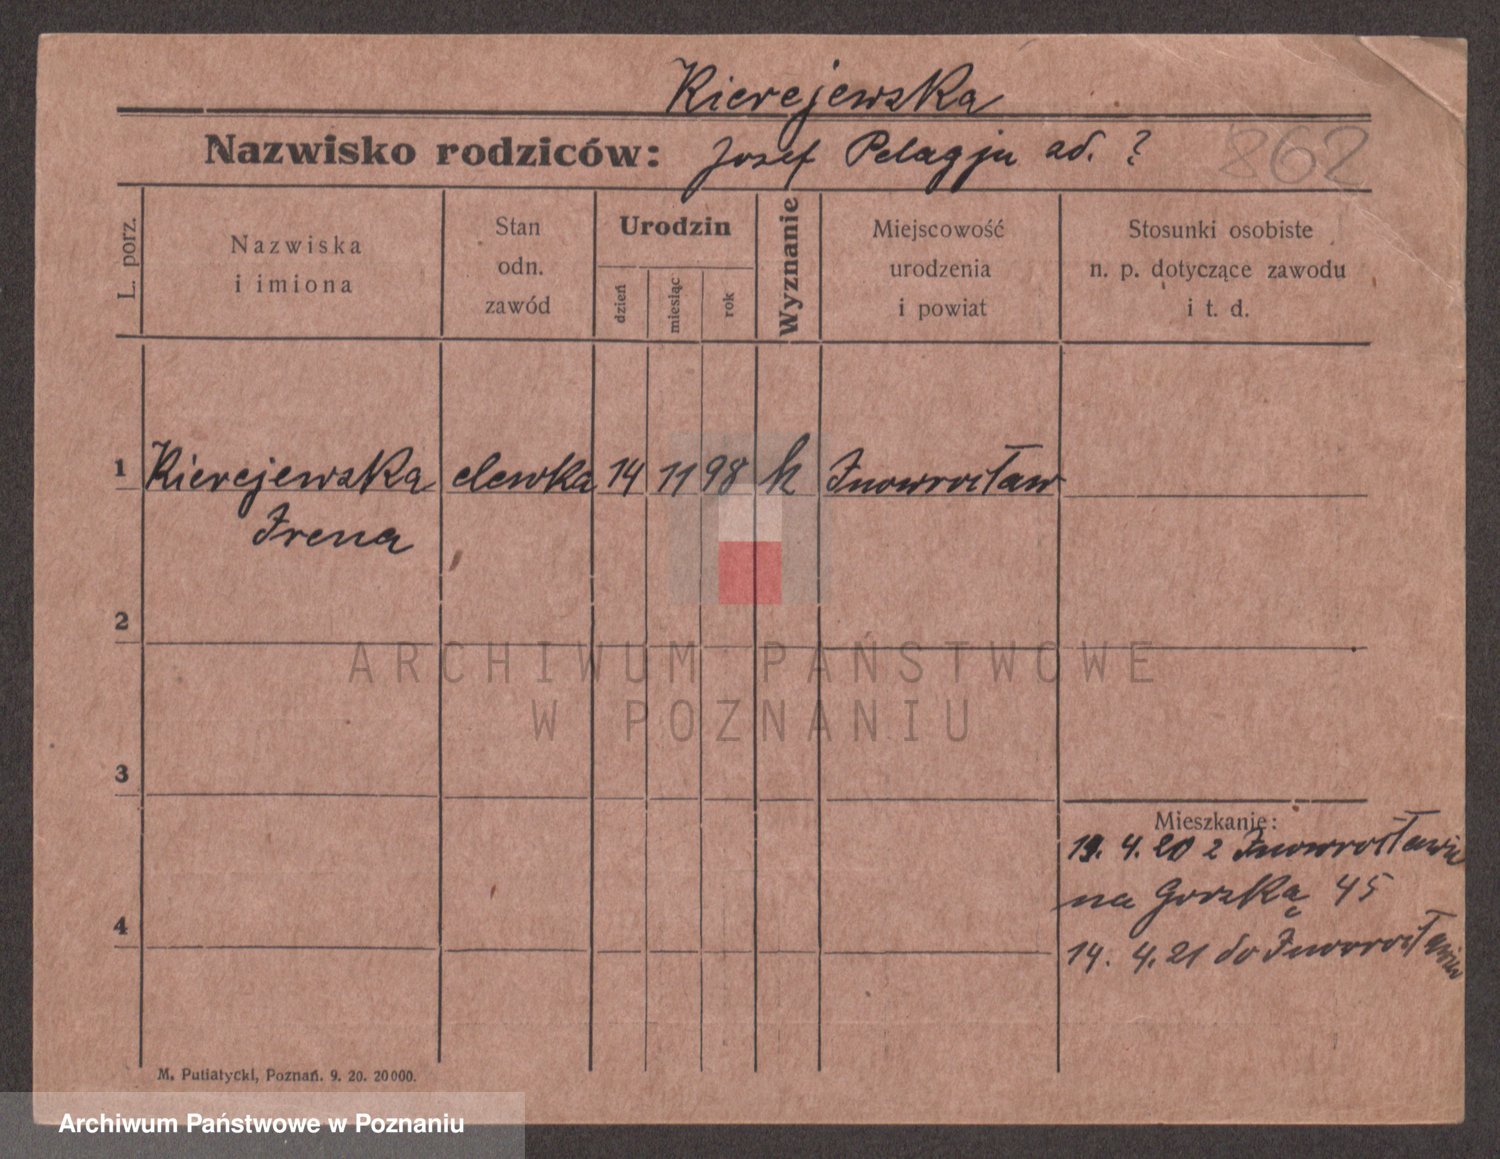 Kierejewska
Nazwisko rodziców: Josef Pelagju ad. ?
862
L. porz.
Nazwiska
i imiona
Stan
odn.
zawód
Urodzin
dzień
miesiąc
rok
Wyznanie
Miejscowość
urodzenia
i powiat
Stosunki osobiste
n. p. dotyczące zawodu
i t. d.
1 Kierejewska elewka 14 11 98 k Inowrocław
Irena
2
ARCHIWUM PAŃSTWOWE
W POZNANIU
3
Mieszkanie:
4. 20 z Inowrocławia
na Gorzką 45
4
14. 4. 21 do Inowrocławia
M. Putiatycki, Poznań. 9. 20. 20000.
Archiwum Państwowe w Poznaniu